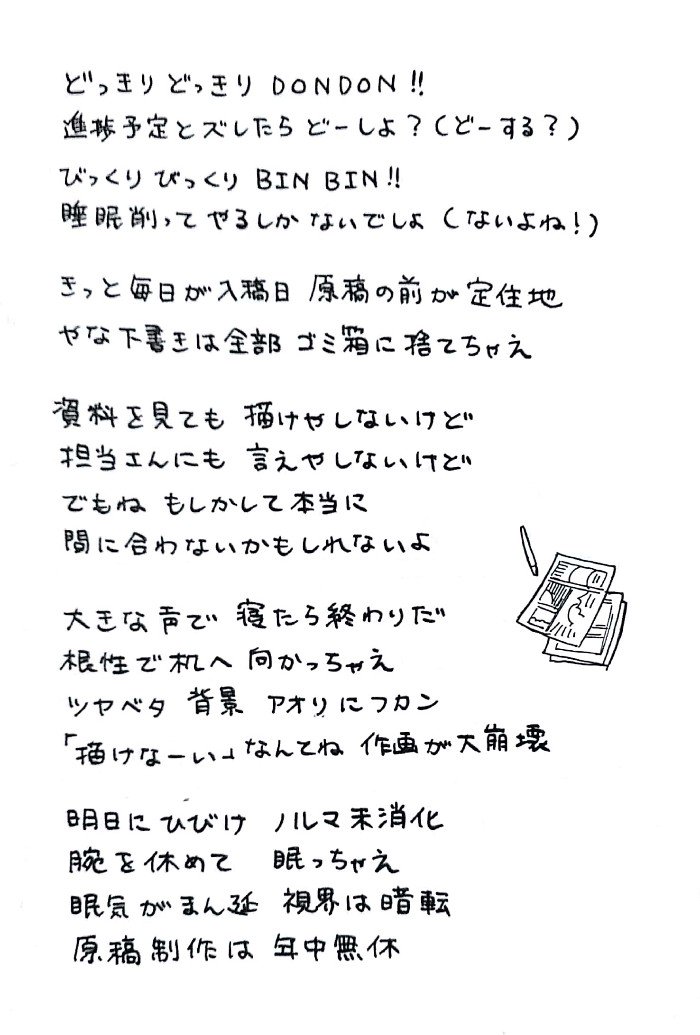 どっきりどっきり DONDON!!
進捗予定とズレたら どーしよ？(どーする？)
びっくりびっくり BIN BIN!!
睡眠削って やるしか ないでしょ (ないよね！)
きっと毎日が入稿日 原稿の前が 定住地
やな下書きは全部 ゴミ箱に捨てちゃえ
資料を見ても 描けやしないけど
担当さんにも 言えやしないけど
でもね もしかして本当に
間に合わないかもしれないよ
大きな声で 寝たら終わりだ
根性で机へ 向かっちゃえ
ツヤベタ 背景 アオリにフカン
「描けなーい」なんてね 作画が大崩壊
明日にひびけ ノルマ未消化
腕を休めて 眠っちゃえ
眠気がまん延 視界は暗転
原稿制作は 年中無休